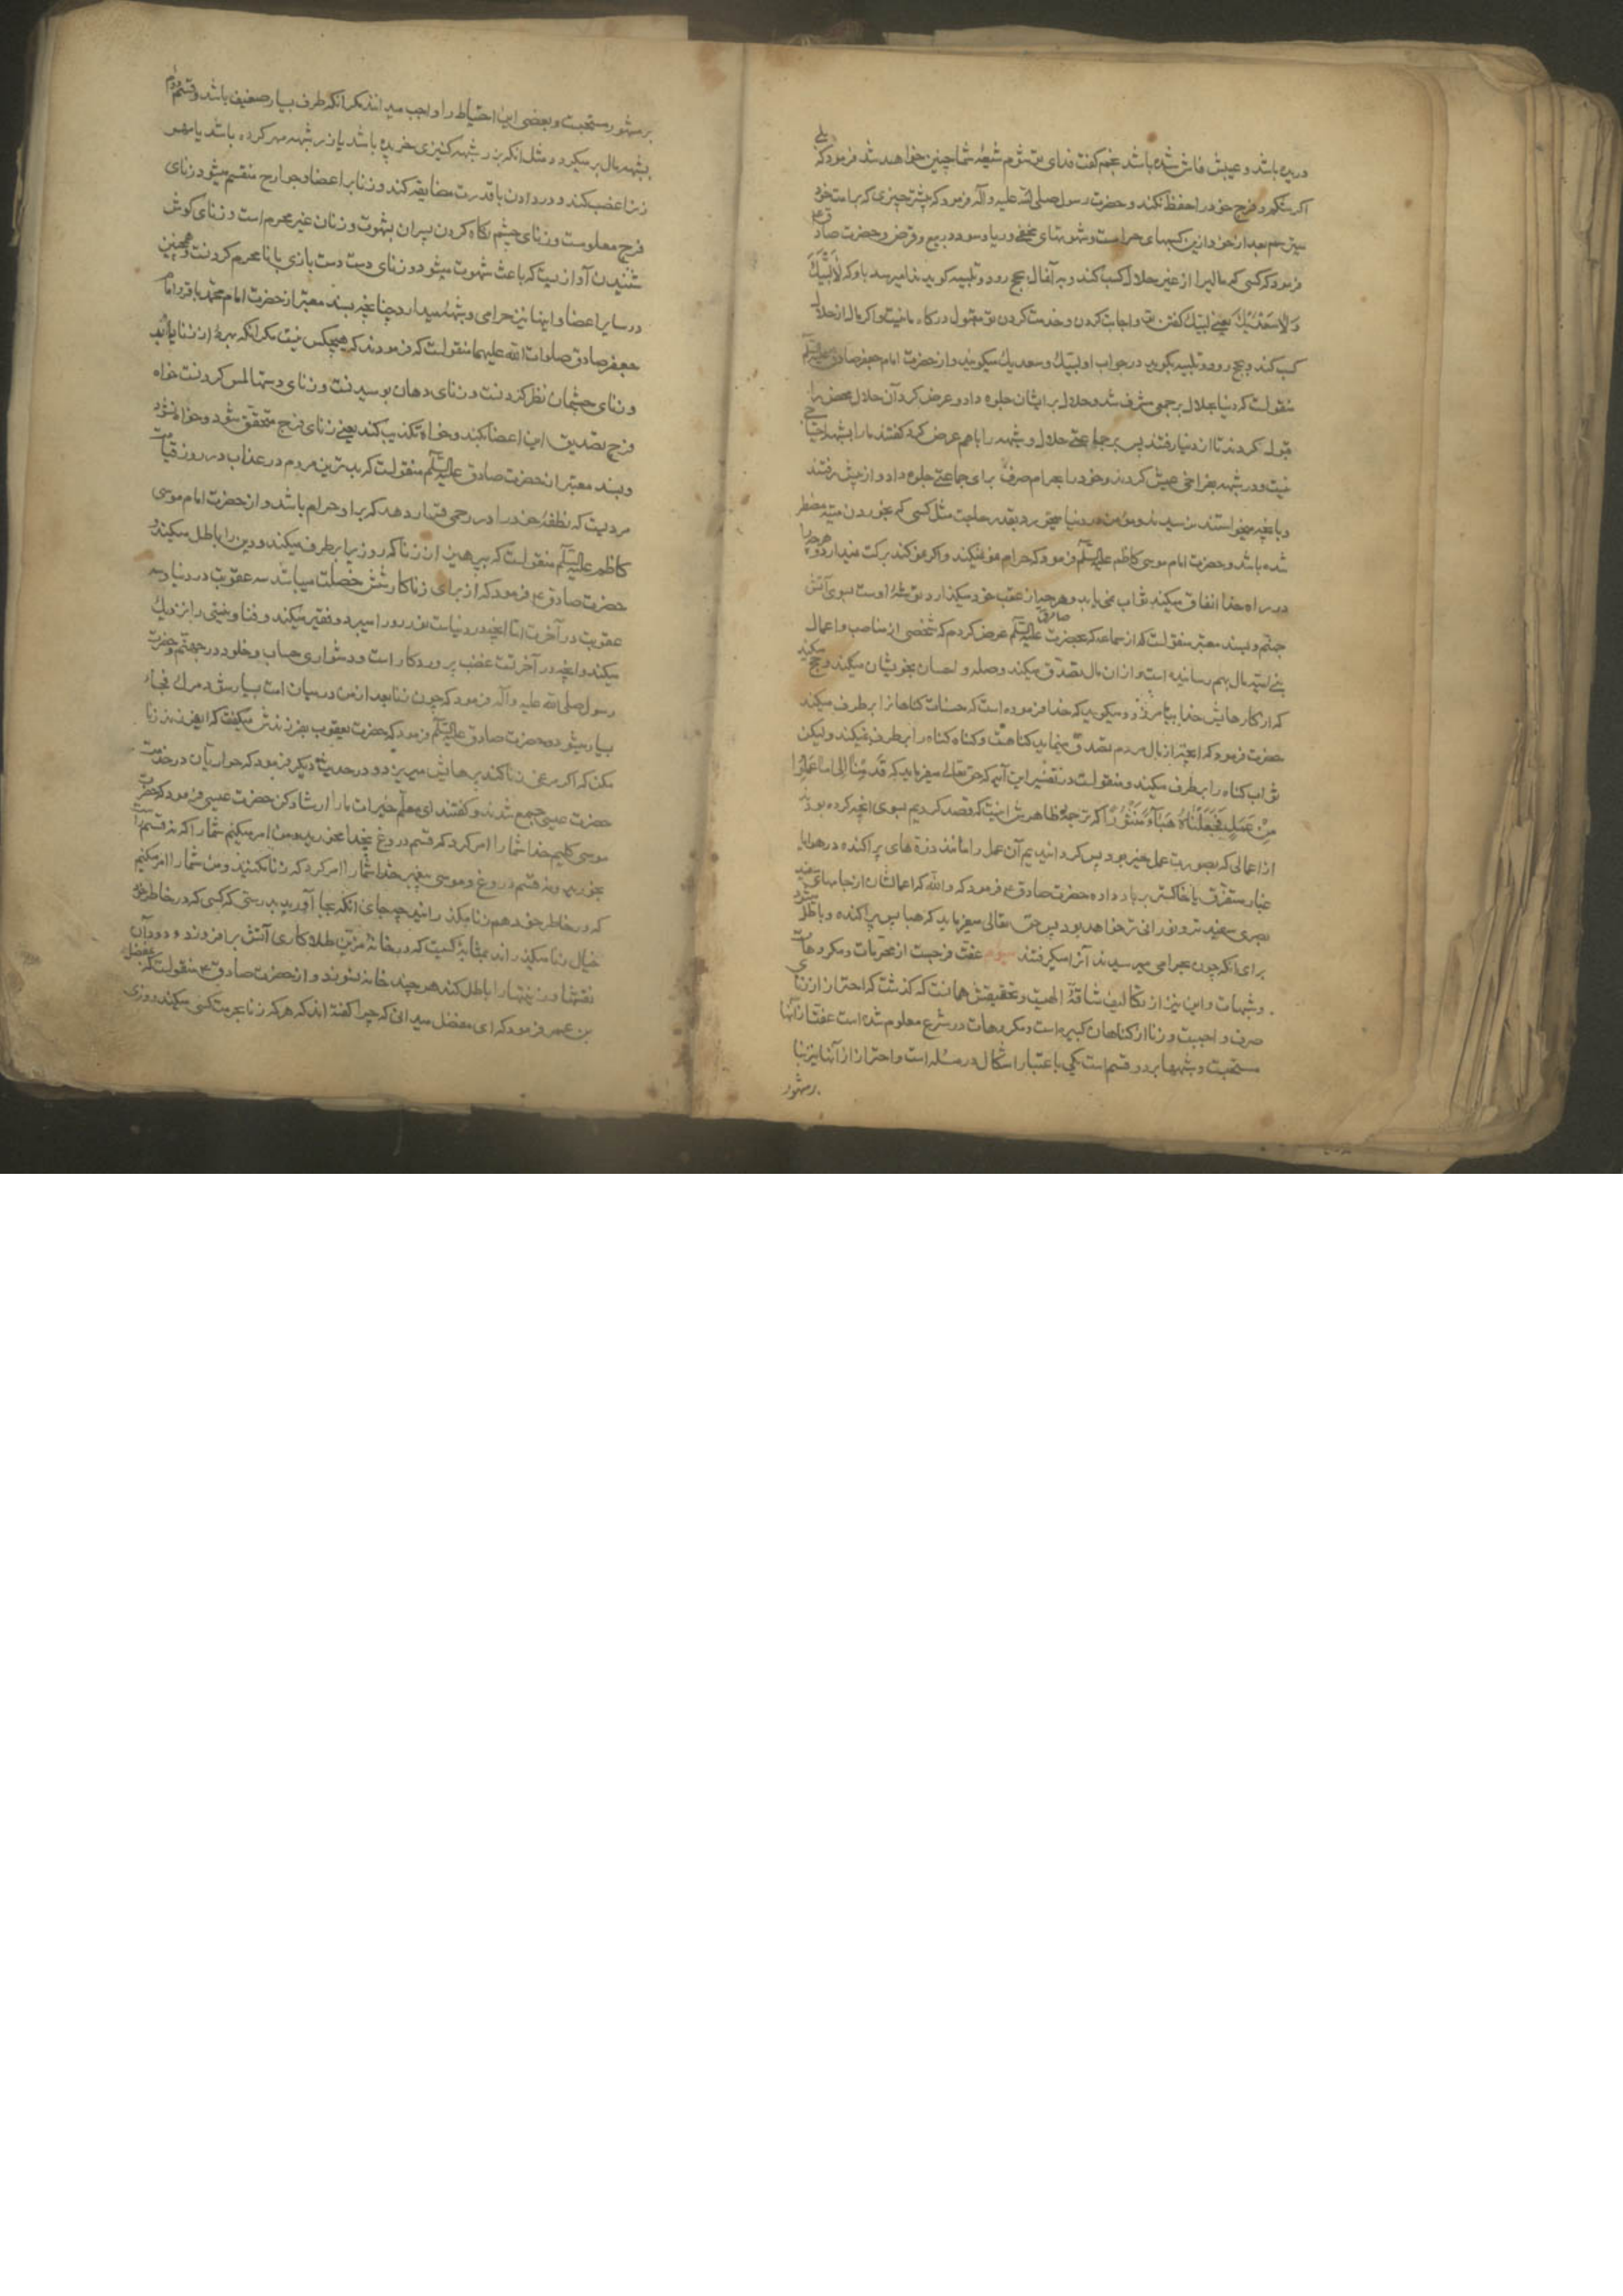 دریده باشد و عیبش فاش شده باشد نجم گفت فدای تو شوم شیعهٔ شما چنین خواهد شد فرمود که بلی
اگر شکم و فرج خود را حفظ نکند و حضرت رسول صلی الله علیه وآله فرمود که بیشتر چیزی که بر امت خود
میترسم بعد از خود ازین کسبهای حرامست و شهوتهای مخفی و ربا و سود در بیع و قرض و حضرت صادق ع
فرمود که کسی که مالیرا از غیر حلال کسب کند و به آن مال بحج رود و تلبیه گوید ندا میرسد باو که لا لبیک
ولا سعدیک یعنی لبیک گفتن تو و اجابت کردن و خدمت کردن تو مقبول درگاه ما نیست و اگر مال از حلال
کسب کند و بحج رود و تلبیه بگوید در جواب او لبیک و سعدیک میگویند و از حضرت امام جعفر صادق علیه السلام
منقولست که دنیا بحلال بر جمعی مشرف شد و حلال بر ایشان جلوه داد و عرض کرد آن حلال محض را
قبول نکردند تا از دنیا رفتند پس بر جماعتی حلال و شبهه را باهم عرض کرد گفتند ما را بشبهه احتیاجی
نیست و در شبهه بفراخی عیش کردند و خود را بحرام صرف برای جماعتی جلوه داد و از پیش رفتند
و بآنچه میخواستند نرسیدند و مؤمن در دنیا چیزی میخورد بقدر حاجت مثل کسی که بخوردن میته مضطر
شده باشد و حضرت امام موسی کاظم علیه السلام فرمود که حرام نمو نمیکند و اگر نمو کند برکت نمیدارد و هر چه را
در راه خدا انفاق میکند ثواب نمی یابد و هر چه از عقب خود میگذارد توشهٔ اوست بسوی آتش
جهنم و بسند معتبر منقولست که از سماعه که بحضرت صادق علیه السلام عرض کردم که شخصی از مناصب و اعمال
بنی امیه مال بهم رسانیده است و از ان مال تصدق میکند و صله و احسان بخویشان میکند و حج میکند
که از گناهانش خدا بیامرزد و میگوید که خدا فرموده است که حسنات گناهانرا برطرف میکند
حضرت فرمود که آنچه از مال مردم تصدق مینماید گناهست و گناه گناه را برطرف نمیکند ولیکن
ثواب گناه را برطرف میکند و منقولست در تفسیر این آیه که حق تعالی میفرماید که قدمنا الی ما عملوا
من عمل فجعلناه هباء منثورا که ترجمهٔ ظاهرش اینست که قصد کردیم بسوی آنچه کرده بودند
از اعمالی که بصورت عمل خیر بود پس گردانیدیم آن عمل را مانند ذره های پراکنده در هوا یا
غبار متفرق یا خاکستر بر باد داده حضرت صادق ع فرمود که والله که اعمالشان از جامهای سفید
مصری سفید تر و نورانی تر خواهد بود پس حق تعالی میفرماید که هبا پس پراکنده و باطل میشود
برای آنکه چون بحرامی میرسیدند آنرا میگرفتند سیوم عفت فرجست از محرمات و مکروهات
و شبهات و این نیز از تکالیف شاقهٔ الهیست و تحقیقش همانست که گذشت که احتراز از زنای
صرف واجبست و زنا از گناهان کبیره است و مکروهات در شرع معلوم شده است عفت از آنها
مستحبست و شبهها بر دو قسم است یکی باعتبار اشکال در مسئله است و احتراز از آنها نیز بنا
بر مشهور
بر مشهور مستحبست و بعضی این احتیاط را واجب میدانند مگر آنکه طرف بسیار ضعیف باشد و قسم دوم
بشبهه مال بر میگردد مثل آنکه بزر شبهه کنیزی خریده باشد یا زر شبهه مهر کرده باشد یا مهر
زنرا غصب کند و در دادن با قدرت مضایقه کند و زنا بر اعضا و جوارح منقسم میشود زنای
فرج معلومست و زنای چشم نگاه کردن پسران بشهوت و زنان غیر محرم است و زنای گوش
شنیدن آوازیست که باعث شهوت میشود و زنای دست دست بازی با نامحرم کردنست و همچنین
در سایر اعضا و اینها نیز حرامی و شبههٔ میدارد چنانچه بسند معتبر از حضرت امام محمد باقر و امام
جعفر صادق صلوات الله علیهما منقولست که فرمودند که هیچکس نیست مگر آنکه بهرهٔ از زنا یابد
و زنای چشمان نظر کردنست و زنای دهان بوسیدنست و زنای دستها لمس کردنست خواه
فرج تصدیق این اعضا بکند و خواه تکذیب کند یعنی زنای فرج متحقق شود و خواه نشود
و بسند معتبر از حضرت صادق علیه السلام منقولست که بدترین مردم در عذاب در روز قیامت
مردیست که نطفهٔ خود را در رحمی قرار دهد که بر او حرام باشد و از حضرت امام موسی
کاظم علیه السلام منقولست که بپرهیز از زنا که روزیرا برطرف میکند و دین را باطل میکند و
حضرت صادق ع فرمود که از برای زناکار شش خصلت میباشد سه عقوبت در دنیا و سه
عقوبت در آخرت اما آنچه در دنیاست نور رو را میبرد و فقیر میکند و فنا و نیستی را نزدیک
میکند و آنچه در آخرتست غضب پروردگار است و دشواری حساب و خلود در جهنم و حضرت
رسول صلی الله علیه وآله فرمود که چون زنا بعد از من در میان امت بسیار شود مرگ فجأه
بسیار میشود و حضرت صادق علیه السلام فرمود که حضرت یعقوب بفرزندش میگفت که ای فرزند زنا
مکن که اگر مرغی زنا کند پرهایش میریزد و در حدیث دیگر فرمود که حواریان در خدمت
حضرت عیسی جمع شدند و گفتند ای معلم خیرات ما را ارشاد کن حضرت عیسی فرمود که حضرت
موسی کلیم خدا شما را امر کرد که قسم دروغ بخدا مخورید و من امر میکنم شما را که نه قسم راست
بخورید و نه قسم دروغ و موسی پیغمبر خدا شما را امر کرد که زنا مکنید و من شما را امر میکنم
که در خاطر خود هم زنا مگذرانید چه جای آنکه بجا آورید بدرستی که کسی که در خاطر خود
خیال زنا میگذراند بمثابهٔ کسیست که در خانهٔ مزین طلاکاری آتش برافروزند و دود آن
نقشها و زینتها را باطل کند هر چند خانه نسوزد و از حضرت صادق ع منقولست که بمفضل
بن عمر فرمود که ای مفضل میدانی که چرا گفته اند که هر که زنا بحرمت کسی میکند روزی